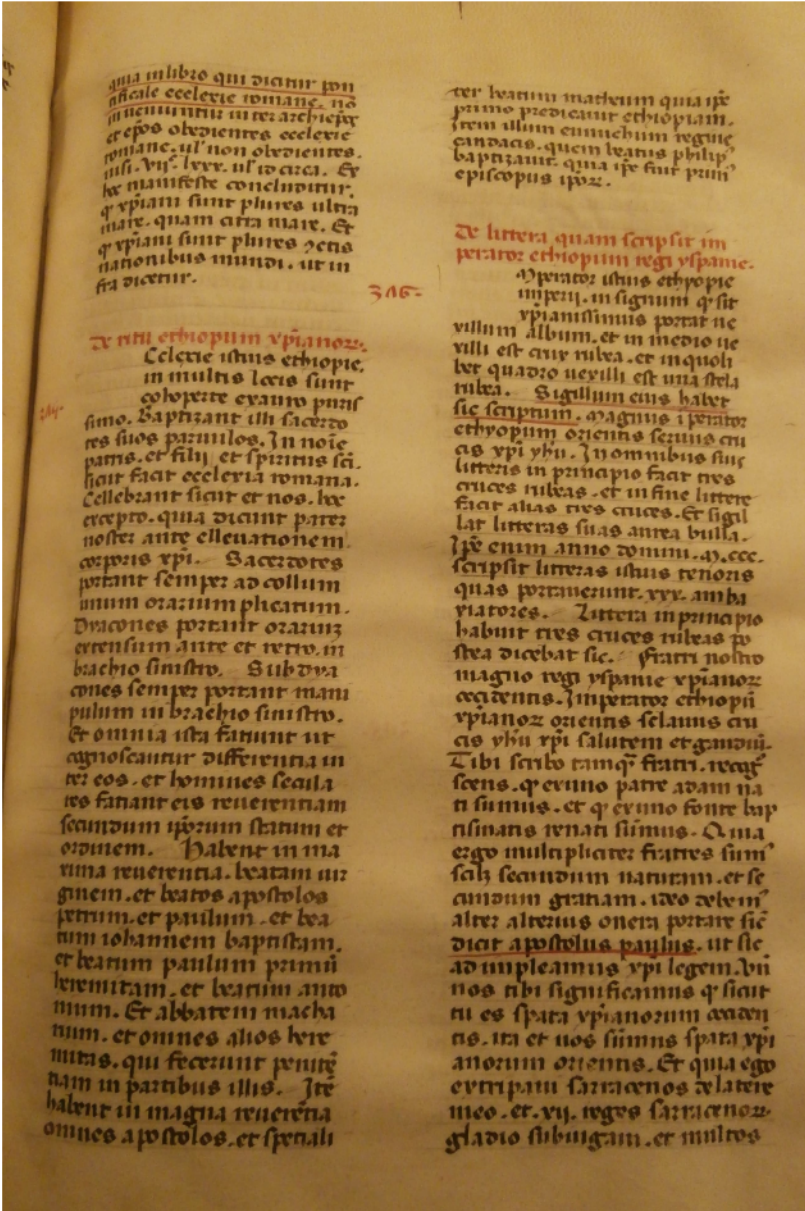 quia in libro qui dicitur pon
tificale ecclexie romane. nō
inveniuntur inter archiep̄os
et ep̄os obedientes ecclexie
romane. ul' non obedientes.
nisi. vijᶜ. lxxx. ul' id circa. Ex
hec manifeste concluditur.
q xp̄iani sunt plures ultra
mare. quam citra mare. Et
q xp̄iani sunt plures ꝯctis
nationibus mundi. ut in
fra dicetur.
346.
De ritu ethiopum xp̄ianoꝝ.
Cclexie istius ethiopie.
in multis locis sunt
cohoperte ex auro puris
simo. Baptizant illi sacerdo
tes suos parvulos. In noīe
patris. et filij et spiritus sc̄i.
sicut facit ecclexia romana.
Cellebrant sicut et nos. hoc
excepto. quia dicunt pater
noster ante ellevationem
corporis xp̄i. Sacerdotes
portant semper ad collum
unum orarium plicatum.
Dyacones portant orariuꝫ
extensum ante et retro. in
brachio sinistro. Subdya
cones semper portant mani
pulum in brachio sinistro.
Et omnia ista faciunt ut
cognoscantur differentia in
ter eos. et homines secula
res faciant eis reverentiam
secundum ip̄orum statum et
ordinem. Habent in ma
xima reverentia. beatam vir
ginem. et beatos apostolos
petrum. et paulum. et bea
tum iohannem baptistam.
et beatum paulum primū
heremitam. et beatum anto
nium. Et abbatem macha
rium. et omnes alios here
mitas. qui fecerunt penitē
tiam in partibus illis. Itē
habent in magna reverētia
omnes apostolos. et speciali
ter beatum matheum quia ip̄e
primo predicavit ethiopiam.
Item illum eunuchum regine
candacis. quem beatus philip'
baptizavit. quia ip̄e fuit prim'
episcopus ip̄oꝝ.
De littera quam scripsit im
perator ethiopum regi yspanie.
Mperator istius ethyopie
imperij. in signum q sit
xp̄ianissimus portat ve
xillum album. et in medio ve
xilli est crux rubea. et in quoli
bet quadro vexilli est una stela
rubea. Sigillum eius habet
sic scriptum. Magnus īperator
ethyopum orientis servus cru
cis xp̄i yhū. In omnibus suis
litteris in principio facit tres
cruces rubeas. et in fine littere
facit alias tres cruces. Et sigil
lat litteras suas aurea bulla.
Ip̄e enim anno domini. M.ccc.
scripsit litteras istius tenoris
quas portaverunt. xxx. amba
xiatores. Littera in principio
habuit tres cruces rubeas po
stea dicebat sic. Fratri nostro
magno regi yspanie xp̄ianoꝝ
occidentis. Imperator ethiopū
xp̄ianoꝝ orientis sclavus cru
cis yhū xp̄i salutem et gaudiū.
Tibi scribo tamqᷓ fratri. recog̃
scens. q ex uno patre adam na
ti sumus. et q ex uno fonte bap
tismatis renati sumus. Quia
ergo multipliciter fratres sum'
scilꝫ secundum naturam. et se
cundum gratiam. ideo debem'
alter alterius onera portare sic̄
dicit apostolus paulus. ut sic
adimpleamus xp̄i legem. Vn̄
nos tibi significamus q sicut
tu es spata xp̄ianorum occiden
tis. ita et nos sumus spata xp̄i
anorum orientis. Et quia ego
extirpavi sarracenos de latere
meo. et. vij. reges sarracenoꝝ
gladio subiugavi. et multos